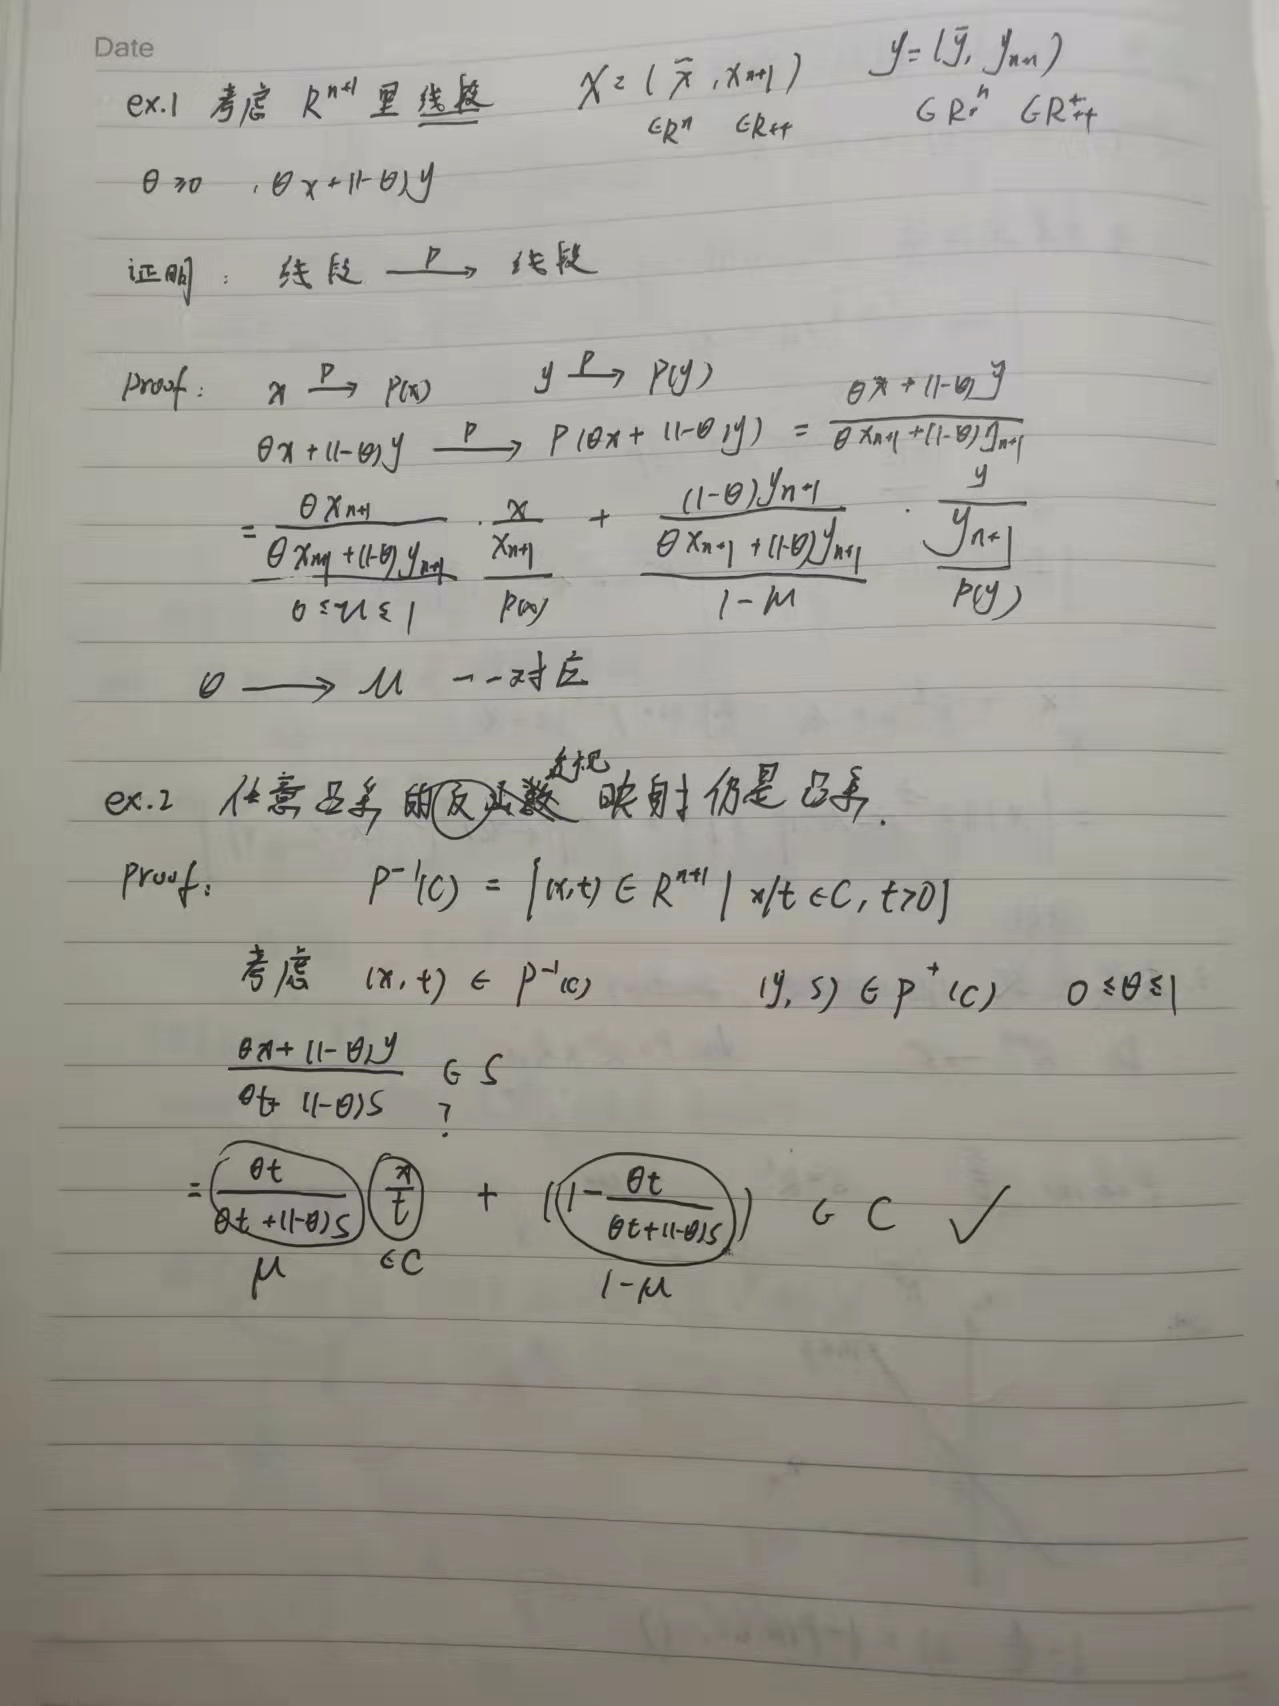 Date
ex.1 考虑 R^{n+1} 里线段 x = (x̄, x_{n+1}) y = (ȳ, y_{n+1})
∈R^n ∈R_{++} ∈R^n ∈R_{++}^+
θ≥0 , θx+(1-θ)y
证明: 线段 —P→ 线段
proof: x —P→ P(x) y —P→ P(y)
θx+(1-θ)y —P→ P(θx+(1-θ)y) = \frac{θx+(1-θ)y}{θx_{n+1}+(1-θ)y_{n+1}}
= \frac{θx_{n+1}}{θx_{n+1}+(1-θ)y_{n+1}} · \frac{x}{x_{n+1}} + \frac{(1-θ)y_{n+1}}{θx_{n+1}+(1-θ)y_{n+1}} · \frac{y}{y_{n+1}}
0≤μ≤1 P(x) 1-μ P(y)
θ → μ 一一对应
ex.2 任意凸集的反透视映射仍是凸集.
proof: P^{-1}(C) = {(x,t) ∈ R^{n+1} | x/t ∈ C, t>0}
考虑 (x,t) ∈ P^{-1}(C) (y,s) ∈ P^{+}(C) 0≤θ≤1
\frac{θx+(1-θ)y}{θt+(1-θ)s} ∈ S
?
= \frac{θt}{θt+(1-θ)s} \frac{x}{t} + ((1-\frac{θt}{θt+(1-θ)s}) ∈ C ✓
μ ∈C 1-μ